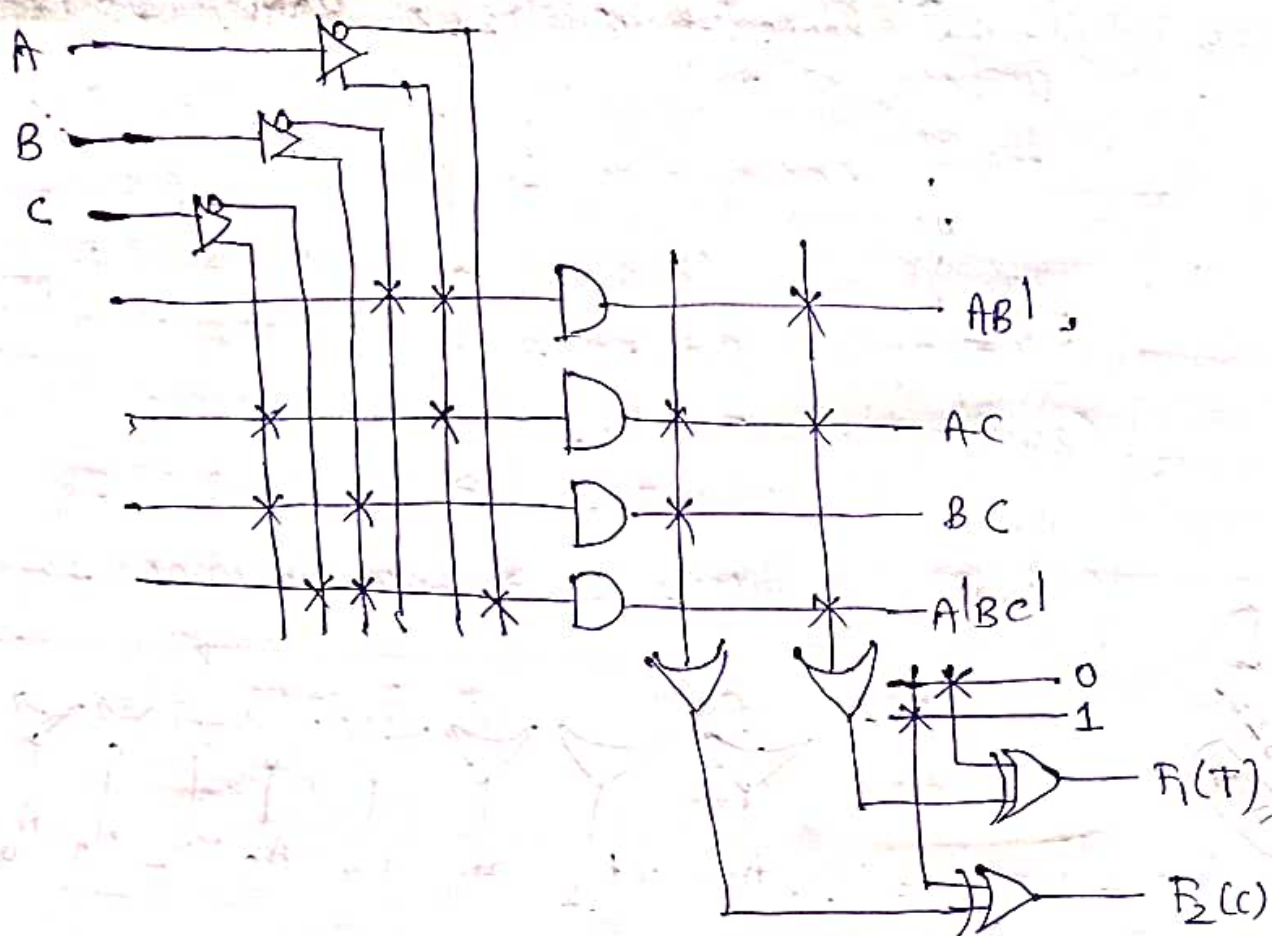 A
B
C
AB'
AC
BC
A'BC'
0
1
F₁(T)
F₂(C)